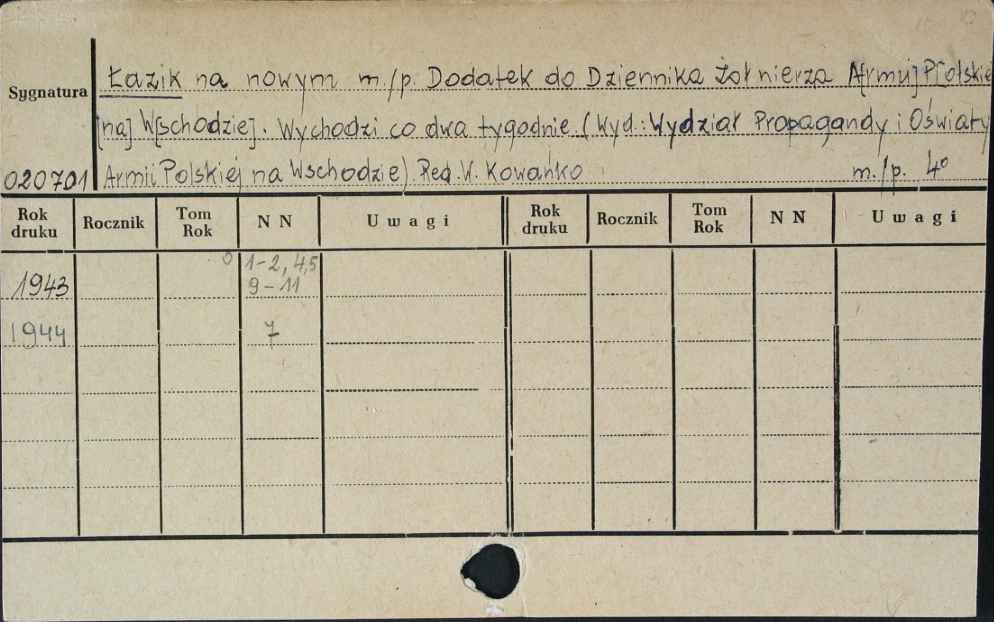 Łazik na nowym m./p. Dodatek do Dziennika Żołnierza A[rmii] P[olskiej
Sygnatura
na] W[schodzie]. Wychodzi co dwa tygodnie (Wyd.: Wydział Propagandy i Oświaty
020701 Armii Polskiej na Wschodzie). Red. W. Kowańko m./p. 4°
Rok druku Rocznik Tom Rok N N Uwagi Rok druku Rocznik Tom Rok N N Uwagi
1-2, 4,5
1943 9-11
1944 7